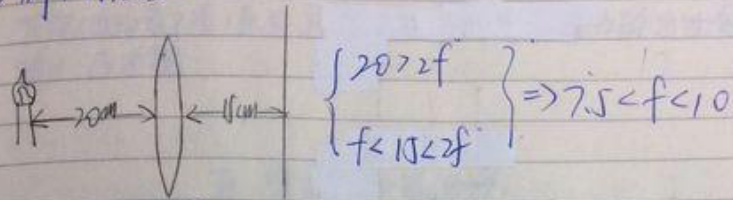 20cm
15cm
20>2f
f<15<2f
=>7.5<f<10